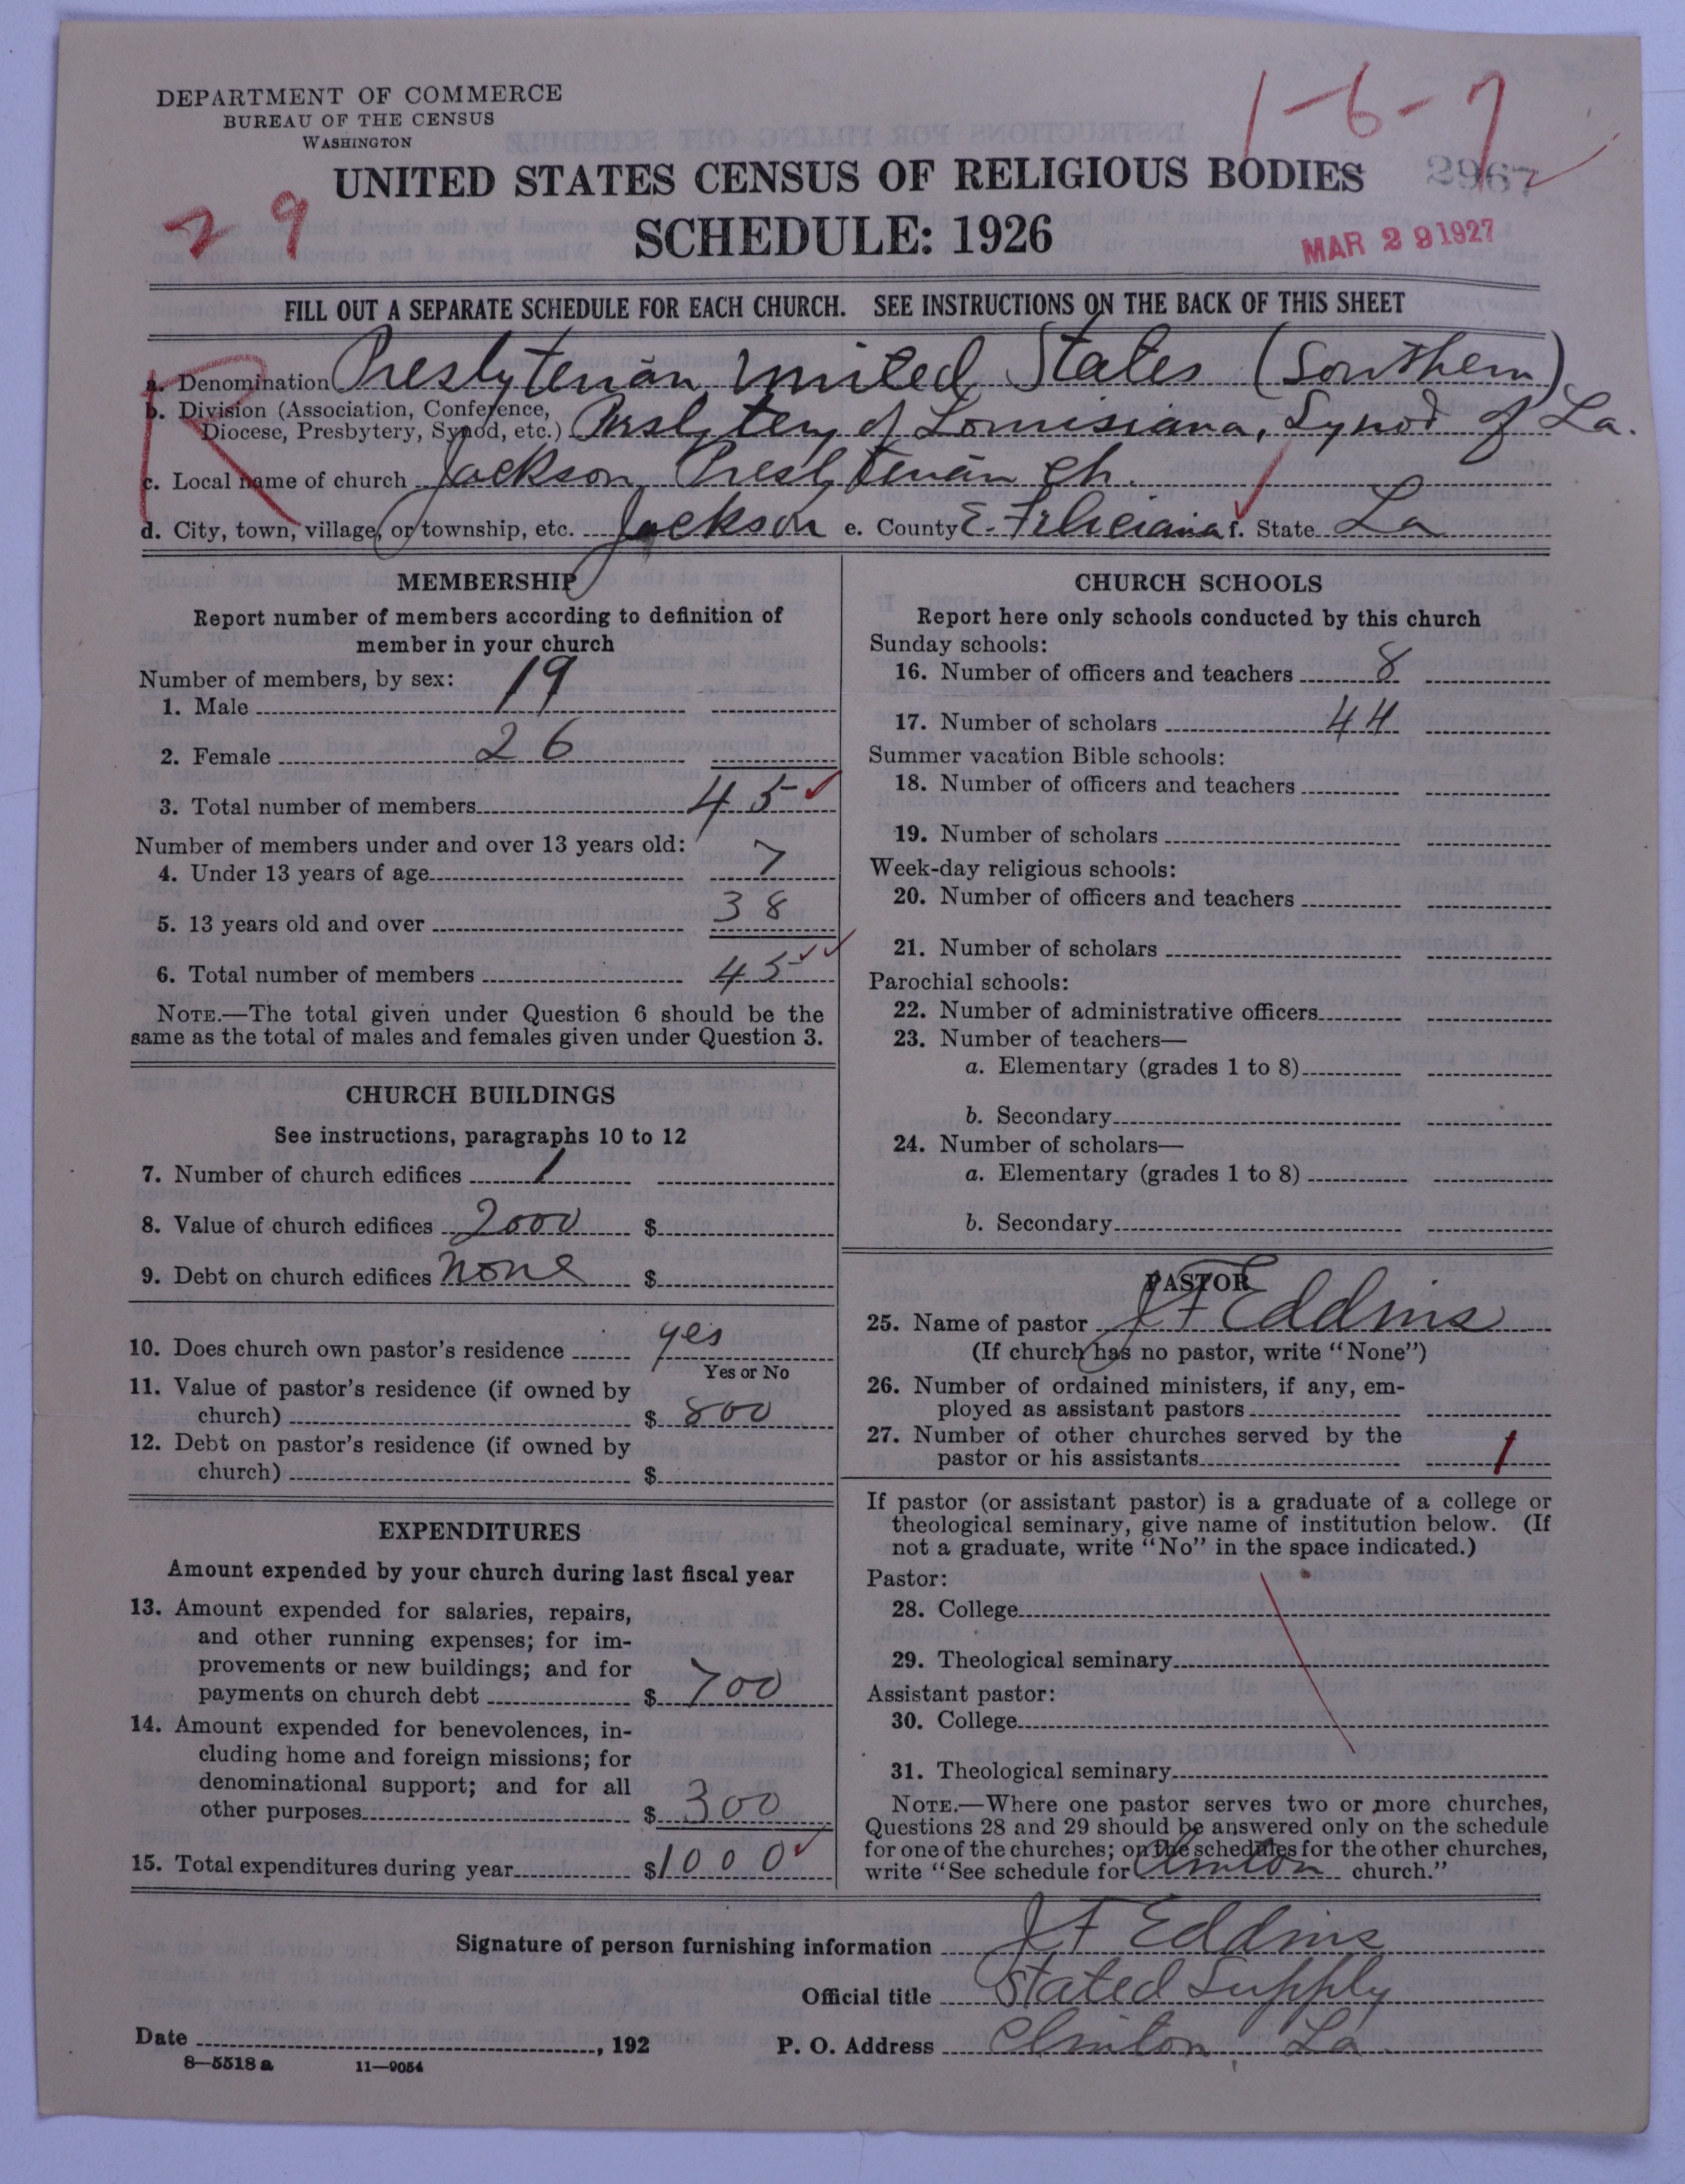 DEPARTMENT OF COMMERCE
BUREAU OF THE CENSUS
WASHINGTON
1-6-7
UNITED STATES CENSUS OF RELIGIOUS BODIES
2967
29
SCHEDULE: 1926
MAR 29 1927
FILL OUT A SEPARATE SCHEDULE FOR EACH CHURCH. SEE INSTRUCTIONS ON THE BACK OF THIS SHEET
R
a. Denomination Presbyterian United States (Southern)
b. Division (Association, Conference,
Diocese, Presbytery, Synod, etc.) Presbytery of Louisiana, Synod of La.
c. Local name of church Jackson Presbyterian Ch.
d. City, town, village, or township, etc. Jackson e. County E. Feliciana f. State La
MEMBERSHIP
Report number of members according to definition of
member in your church
Number of members, by sex:
1. Male 19
2. Female 26
3. Total number of members 45
Number of members under and over 13 years old:
4. Under 13 years of age 7
5. 13 years old and over 38
6. Total number of members 45
NOTE.—The total given under Question 6 should be the
same as the total of males and females given under Question 3.
CHURCH BUILDINGS
See instructions, paragraphs 10 to 12
7. Number of church edifices 1
8. Value of church edifices 2000 $
9. Debt on church edifices none $
10. Does church own pastor's residence yes
Yes or No
11. Value of pastor's residence (if owned by
church) $ 800
12. Debt on pastor's residence (if owned by
church) $
EXPENDITURES
Amount expended by your church during last fiscal year
13. Amount expended for salaries, repairs,
and other running expenses; for im-
provements or new buildings; and for
payments on church debt $ 700
14. Amount expended for benevolences, in-
cluding home and foreign missions; for
denominational support; and for all
other purposes $ 300
15. Total expenditures during year $ 1000
CHURCH SCHOOLS
Report here only schools conducted by this church
Sunday schools:
16. Number of officers and teachers 8
17. Number of scholars 44
Summer vacation Bible schools:
18. Number of officers and teachers
19. Number of scholars
Week-day religious schools:
20. Number of officers and teachers
21. Number of scholars
Parochial schools:
22. Number of administrative officers
23. Number of teachers—
a. Elementary (grades 1 to 8)
b. Secondary
24. Number of scholars—
a. Elementary (grades 1 to 8)
b. Secondary
PASTOR
25. Name of pastor J F Eddins
(If church has no pastor, write "None")
26. Number of ordained ministers, if any, em-
ployed as assistant pastors
27. Number of other churches served by the
pastor or his assistants 1
If pastor (or assistant pastor) is a graduate of a college or
theological seminary, give name of institution below. (If
not a graduate, write "No" in the space indicated.)
Pastor:
28. College
29. Theological seminary
Assistant pastor:
30. College
31. Theological seminary
NOTE.—Where one pastor serves two or more churches,
Questions 28 and 29 should be answered only on the schedule
for one of the churches; on the schedules for the other churches,
write "See schedule for Clinton church."
Signature of person furnishing information J F Eddins
Official title Stated Supply
Date , 192 P. O. Address Clinton, La.
8—5518 a 11—9054